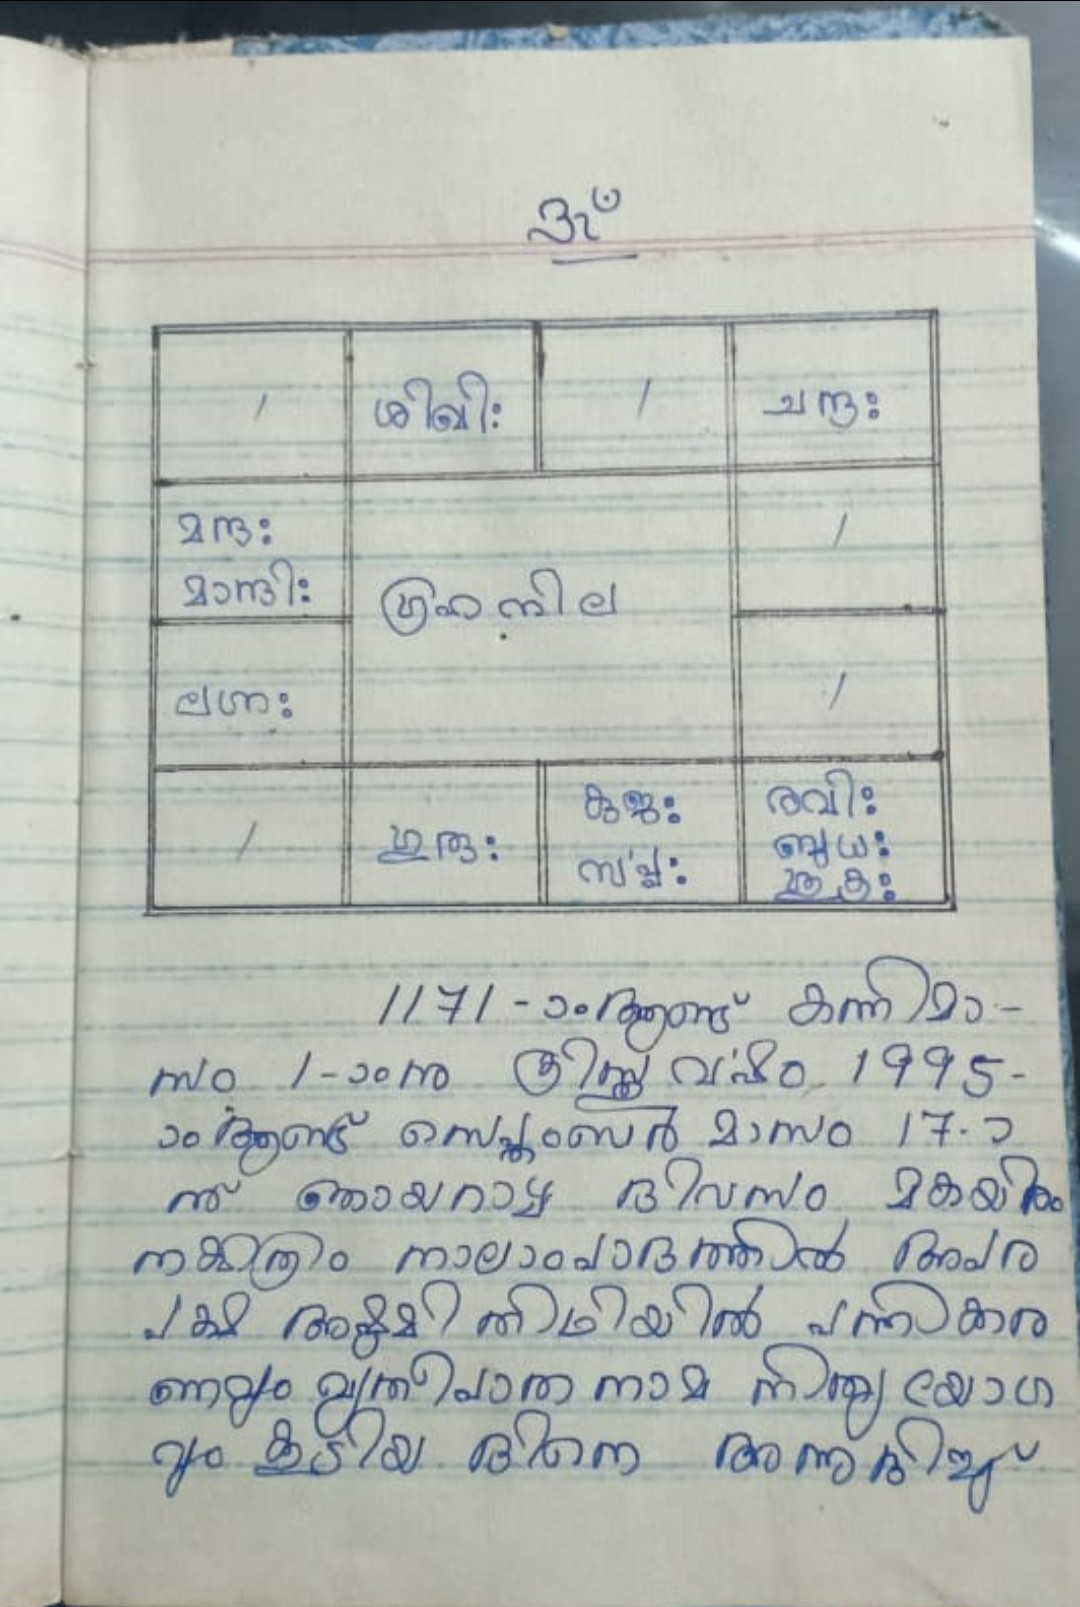 ശിഖിഃ
ചന്ദ്രഃ
മന്ദഃ
മാന്ദിഃ
ഗ്രഹനില
ലഗ്നഃ
ഗുരുഃ
കുജഃ
സർപ്പഃ
രവിഃ
ബുധഃ
ശുക്രഃ
1171-ാംആണ്ട് കന്നിമാ-
സം 1-ാംനു ക്രിസ്തുവർഷം 1995-
ാംആണ്ട് സെപ്തംബർ മാസം 17-ാ
ന്ന് ഞായറാഴ്ച ദിവസം മകയിരം
നക്ഷത്രം നാലാംപാദത്തിൽ അപര
പക്ഷ അഷ്ടമി തിഥിയിൽ പന്നികര
ണവും വ്യതീപാത നാമ നിത്യയോഗ
വും കൂടിയ ദിനെ അന്നുദിച്ച്